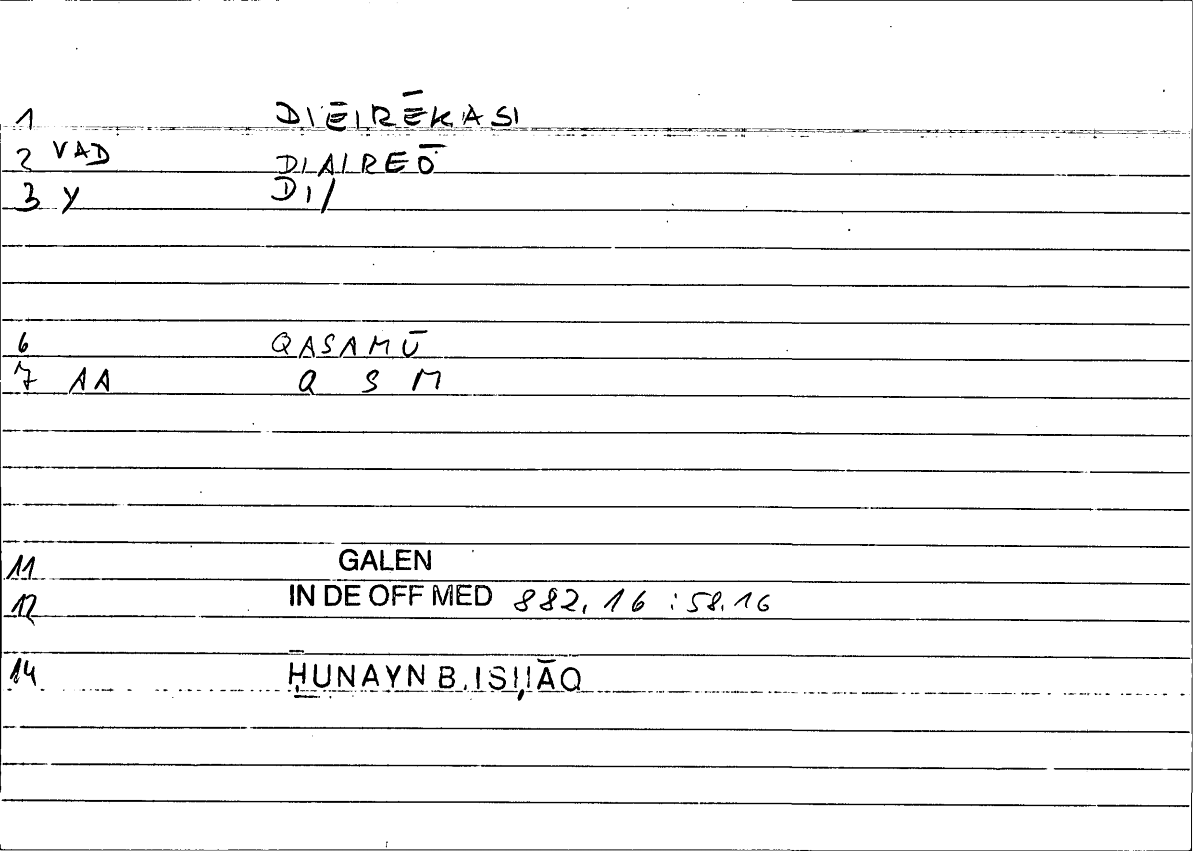 1 DIĒIRĒKASI
2 VAD DIAIREŌ
3 Y DI/
6 QASAMŪ
7 AA Q S M
11 GALEN
12 IN DE OFF MED 882, 16 : 58.16
14 ḤUNAYN B. ISḤĀQ